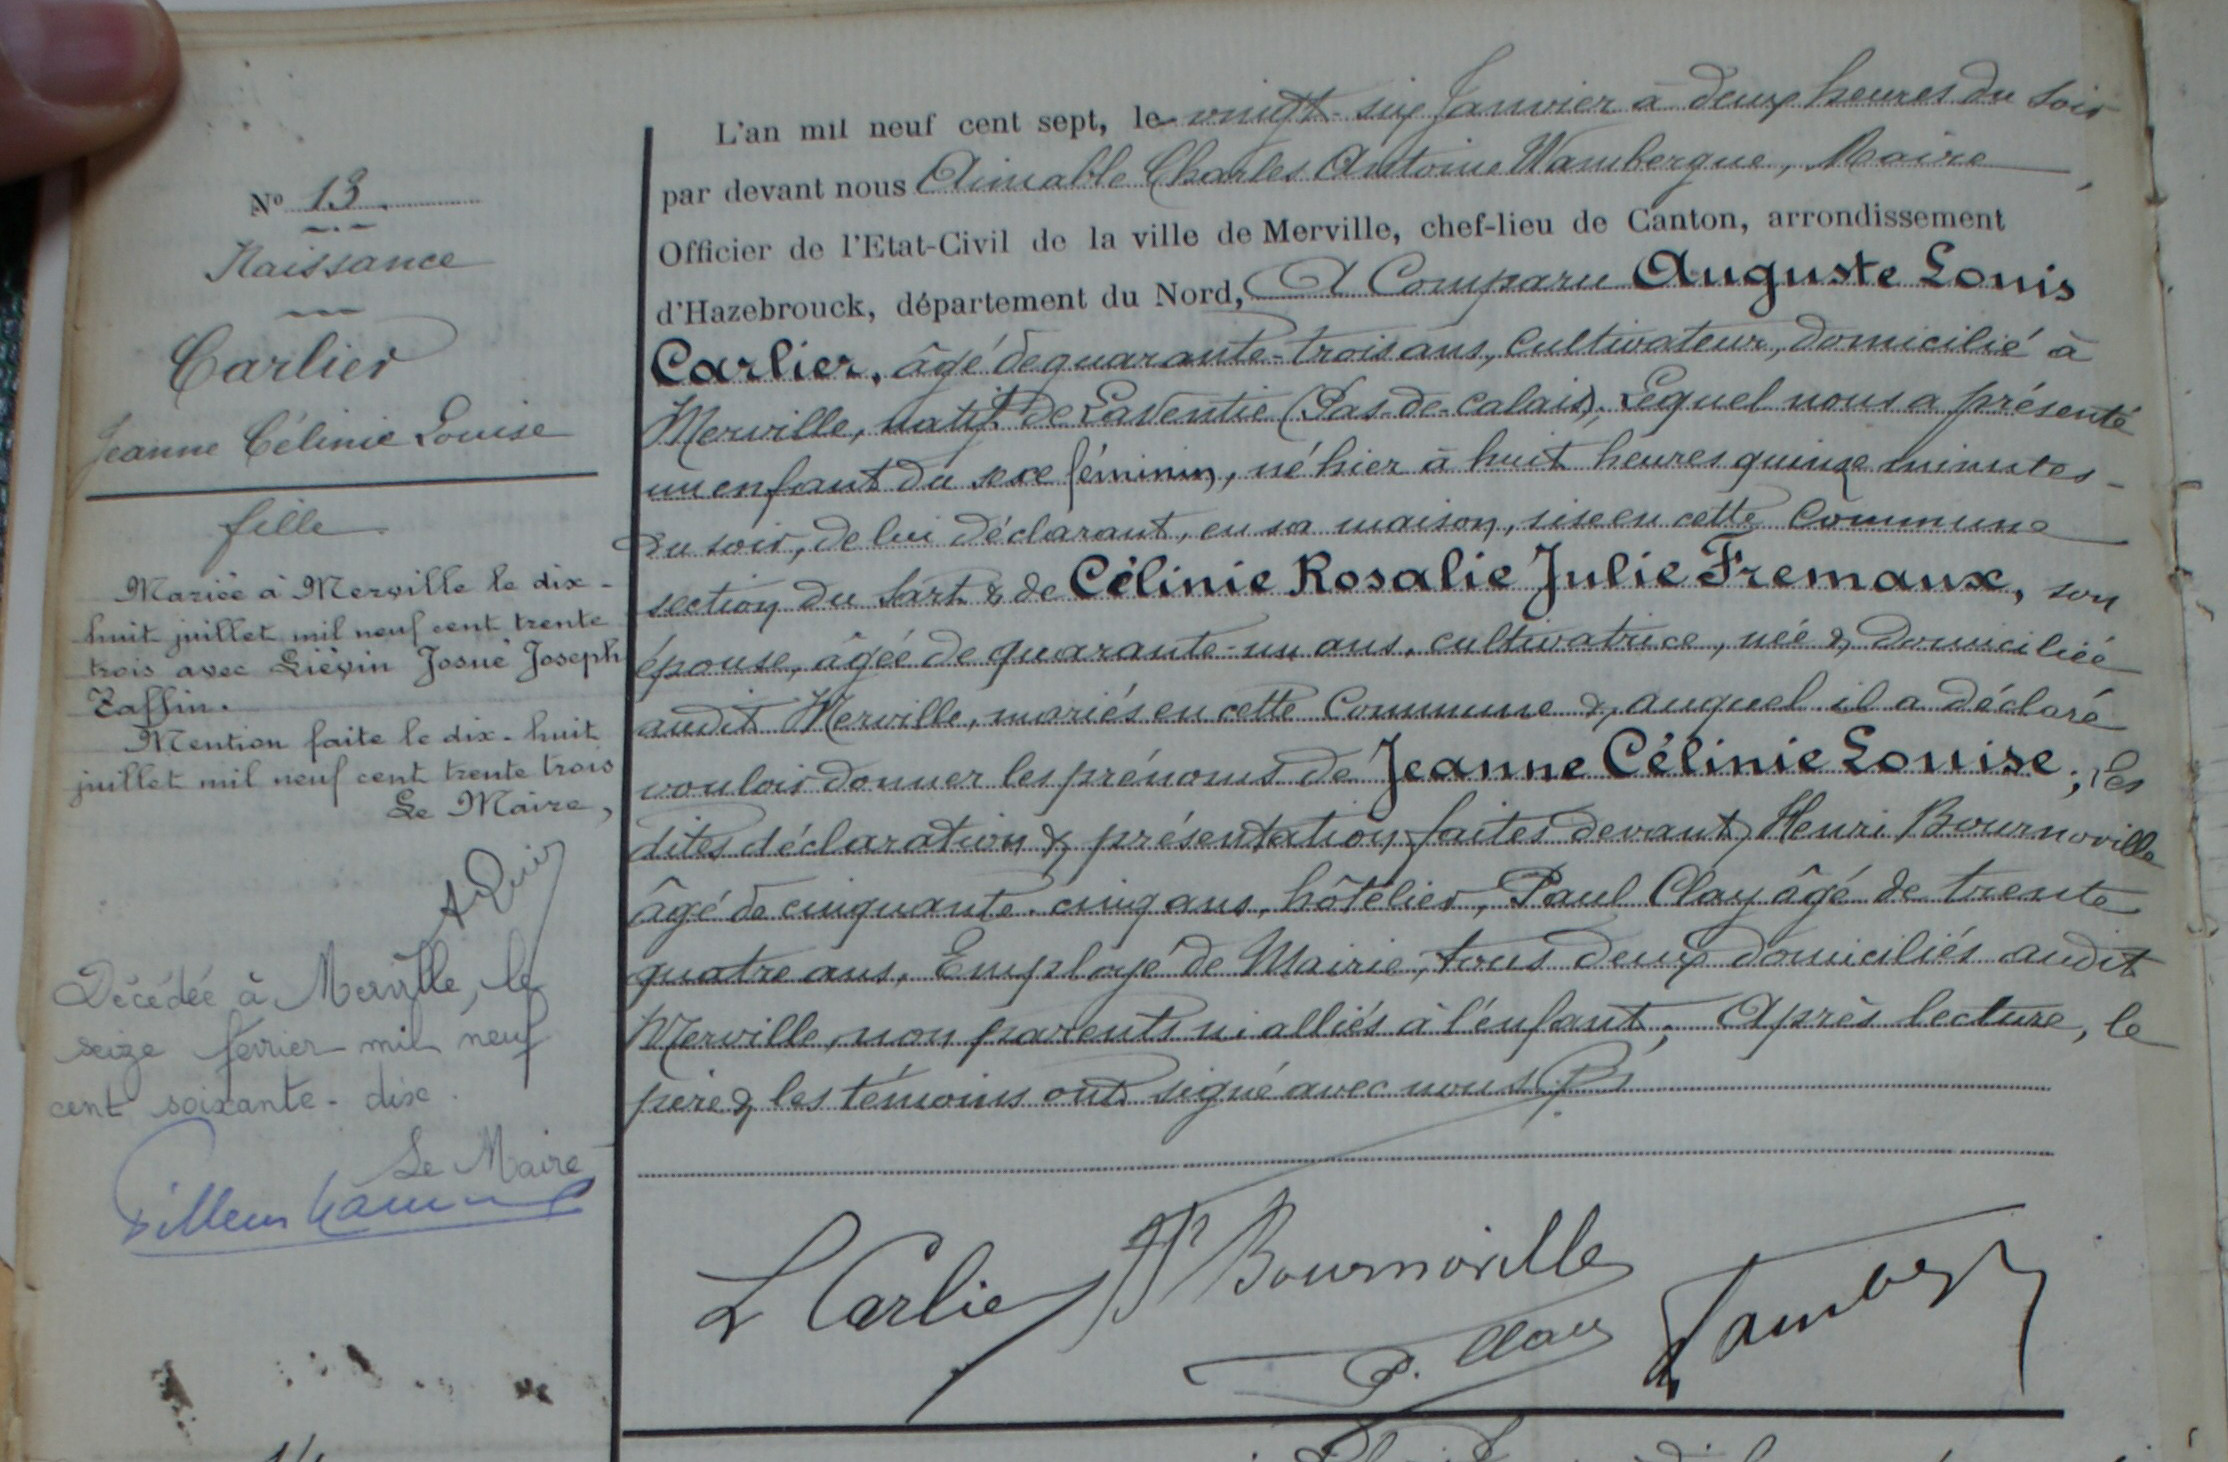 N° 13.
Naissance
Carlier
Jeanne Célinie Louise
fille
Mariée à Merville le dix-
huit juillet mil neuf cent trente
trois avec Liévin Josué Joseph
Taffin.
Mention faite le dix-huit
juillet mil neuf cent trente trois
Le Maire,
Décédée à Merville, le
seize février mil neuf
cent soixante-dix.
Le Maire
L'an mil neuf cent sept, le vingt-six Janvier à deux heures du soir
par devant nous Aimable Charles Antoine Wambergue, Maire,
Officier de l'Etat-Civil de la ville de Merville, chef-lieu de Canton, arrondissement
d'Hazebrouck, département du Nord, A Comparu Auguste Louis
Carlier, âgé de quarante-trois ans, cultivateur, domicilié à
Merville, natif de Laventie (Pas-de-Calais), Lequel nous a présenté
un enfant du sexe féminin, né hier à huit heures quinze minutes
du soir, de lui déclarant, en sa maison, sise en cette Commune
section du Sart & de Célinie Rosalie Julie Fremaux, son
épouse, âgée de quarante-un ans, cultivatrice, née & domiciliée
audit Merville, mariés en cette Commune & auquel il a déclaré
vouloir donner les prénoms de Jeanne Célinie Louise; les
dites déclaration & présentation faites devant Henri Bournoville
âgé de cinquante-cinq ans, hôtelier, Paul Clay âgé de trente
quatre ans, Employé de Mairie, tous deux domiciliés audit
Merville, non parents ni alliés à l'enfant; Après lecture, le
père & les témoins ont signé avec nous
L Carlier
H Bournoville
P. Clay